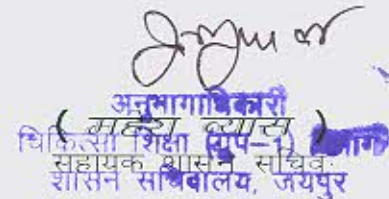 अनुभागाधिकारी
( महेश व्यास )
चिकित्सा शिक्षा (ग्रुप-1) विभाग
सहायक शासन सचिव
शासन सचिवालय, जयपुर